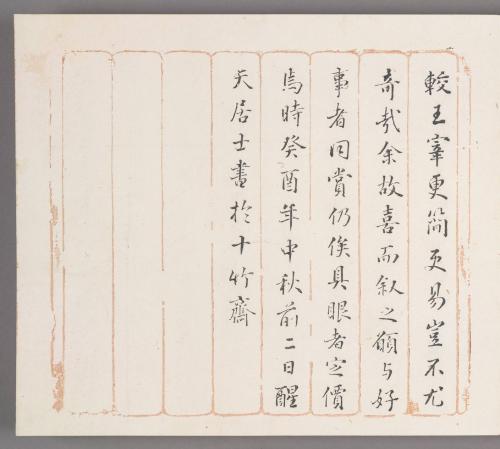 較王宰更簡更易豈不尤
奇哉余故喜而叙之願与好
事者同賞仍俟具眼者定價
焉時癸酉年中秋前二日醒
天居士書於十竹齋